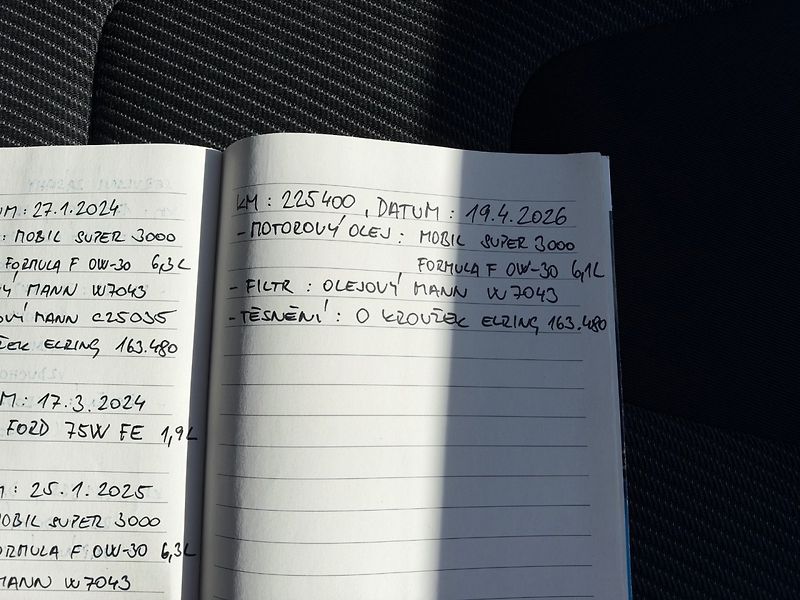 UM : 27.1.2024
: MOBIL SUPER 3000
FORMULA F 0W-30 6,3L
VÝ MANN W7043
OVÝ MANN C25035
ŽEK ELRING 163.480
M : 17.3.2024
FORD 75W FE 1,9L
M : 25.1.2025
MOBIL SUPER 3000
ORMULA F 0W-30 6,3L
MANN W7043
KM : 225400 , DATUM : 19.4.2026
- MOTOROVÝ OLEJ : MOBIL SUPER 3000
FORMULA F 0W-30 6,1L
- FILTR : OLEJOVÝ MANN W7043
- TĚSNĚNÍ : O KROUŽEK ELRING 163.480